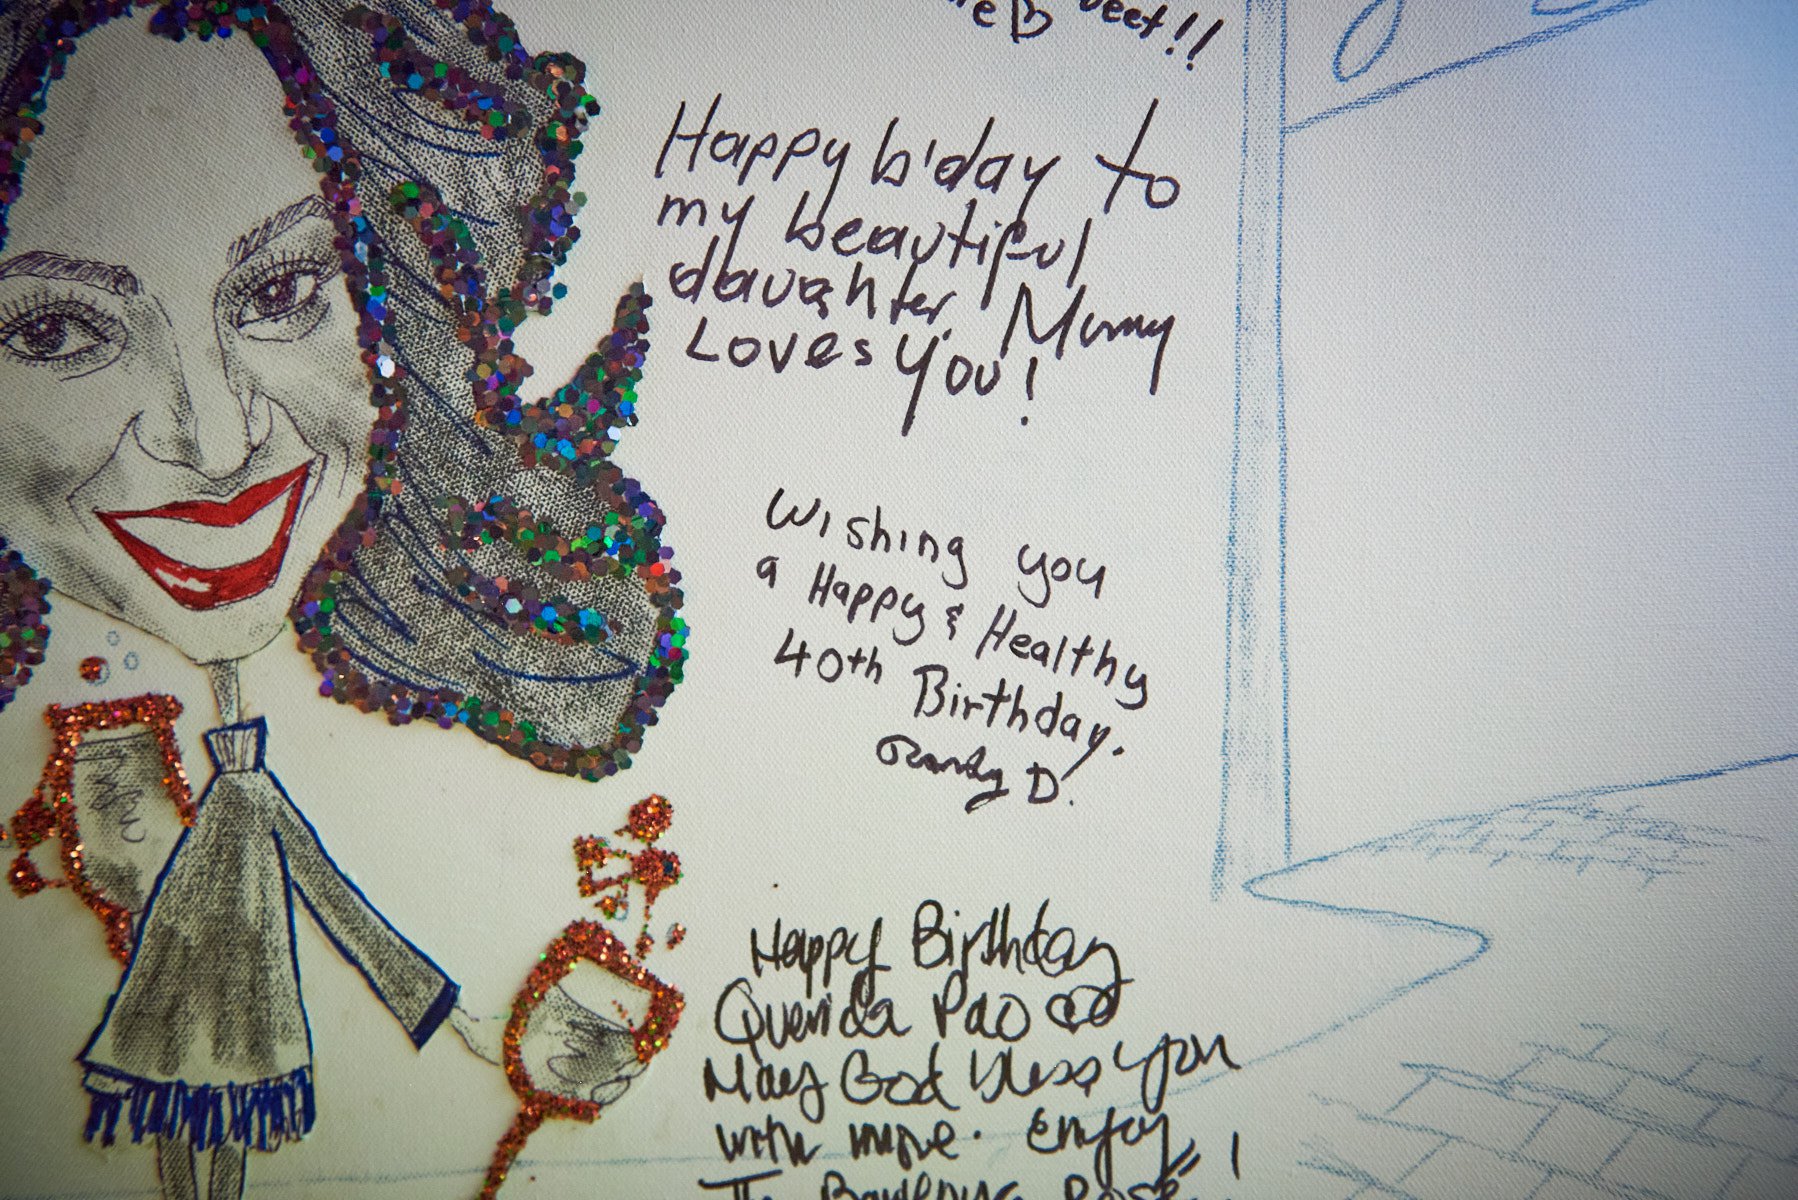 eet!!
Happy b'day to
my beautiful
daughter. Mumy
Loves You!
Wishing you
a Happy & Healthy
40th Birthday.
Randy D.
Happy Birthday
Querida Pao
May God bless you
with more. Enjoy